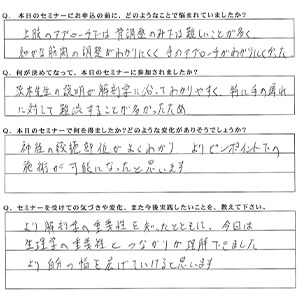 Q. 本日のセミナーにお申込の前に、どのようなことで悩まれていましたか?
上肢のアプローチでは骨調整のみでは難しいことが多く
細かな筋肉の調整がわかりにくく 手のアプローチがわかりにくかった
Q. 何が決めてなって、本日のセミナーに参加されましたか?
先生の説明が解剖学に沿ってわかりやすく、特に手の痺れ
に対して難渋することが多かったため
Q. 本日のセミナーで何を得ましたか?どのような変化がありそうでしょうか?
神経の絞扼部位がよくわかり よりピンポイントでの
施術が可能になったと思います
Q. セミナーを受けての気づきや変化、また今後実践したいことを、教えて下さい。
より解剖学の重要性を知ったとともに、今回は
生理学の重要性とつながりが理解できました
より自分の幅を広げていけると思います